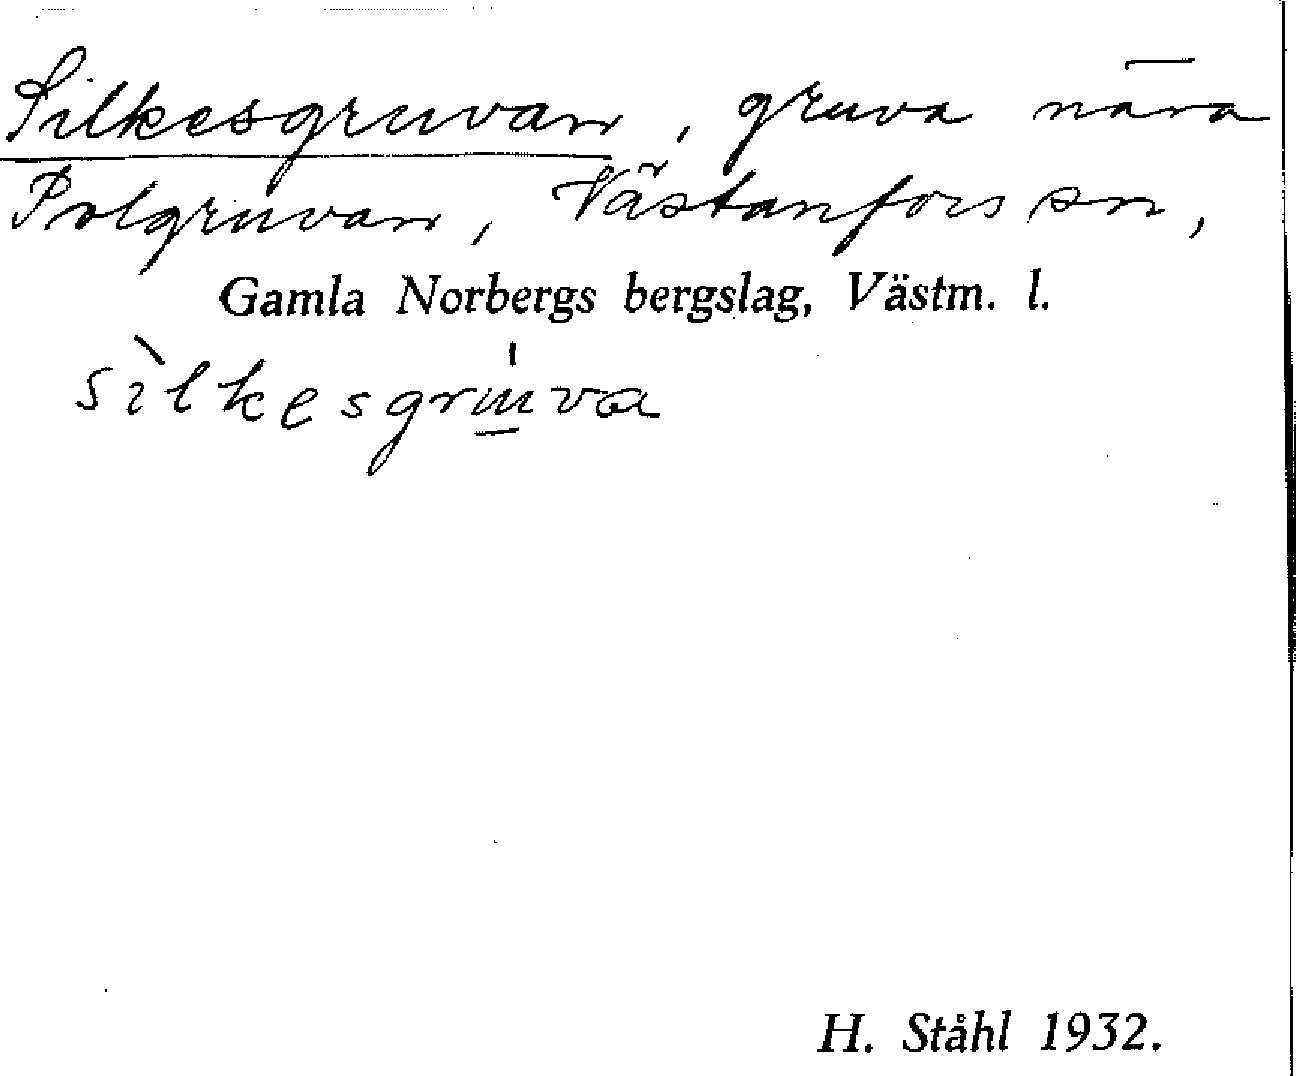 Silkesgruvan, gruva nära
Polgruvan, Västanfors sn,
Gamla Norbergs bergslag, Västm. l.
sìlkesgrúva
H. Ståhl 1932.